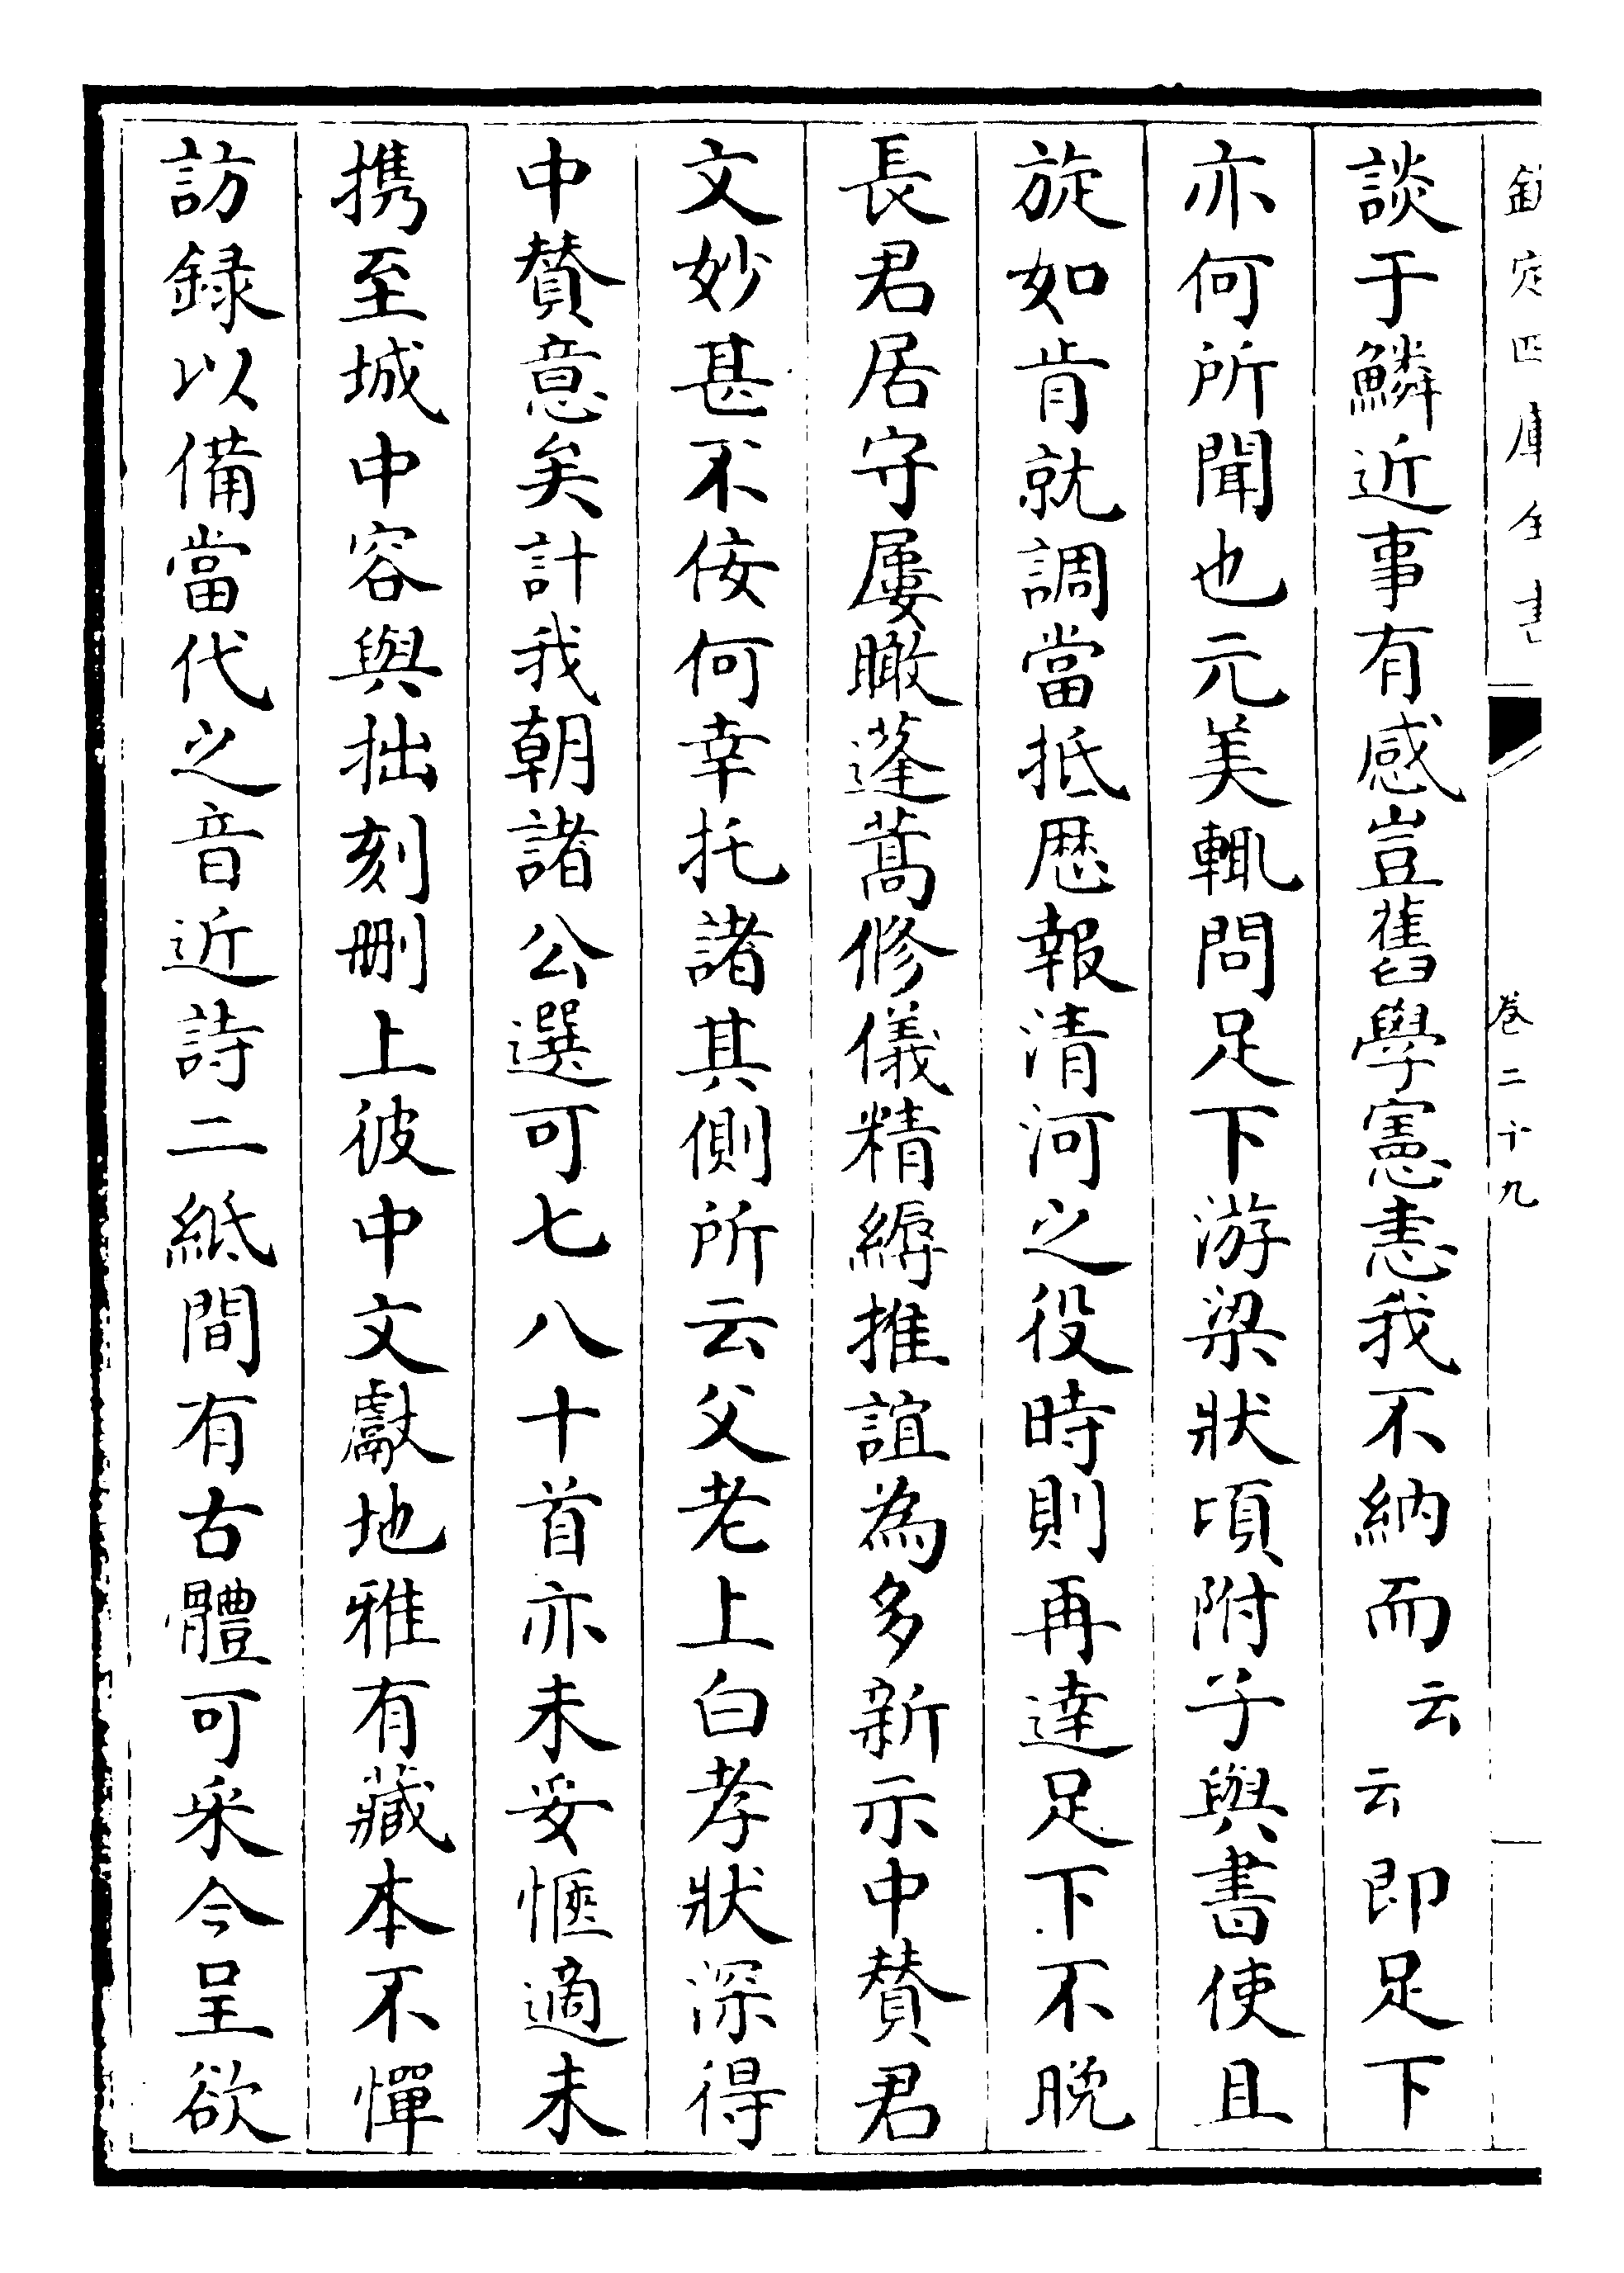 欽定四庫全書
卷二十九
談于鱗近事有感豈舊學憲恚我不納而云云即足下
亦何所聞也元美輙問足下游梁狀頃附子與書使且
旋如肯就調當抵厯報清河之役時則再達足下不晩
長君居守屢瞰蓬蒿修儀精縟推誼為多新示中賛君
文妙甚不侫何幸托諸其側所云父老上白孝狀深得
中賛意矣計我朝諸公選可七八十首亦未妥愜適未
携至城中容與拙刻刪上彼中文獻地雅有藏本不憚
訪録以備當代之音近詩二紙間有古體可采今呈欲